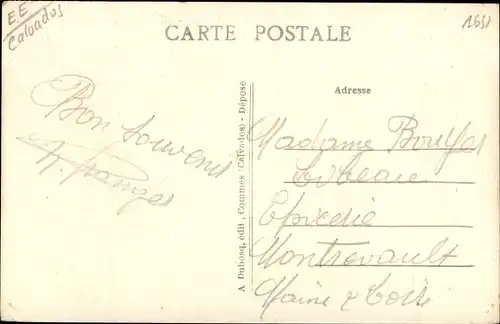 EE
Calvados
CARTE POSTALE
Adresse
Bon souvenir
A Dubosq, édit., Commes (Calvados) - Déposé
Madame
Epicerie
Montrevault
Maine & Loire